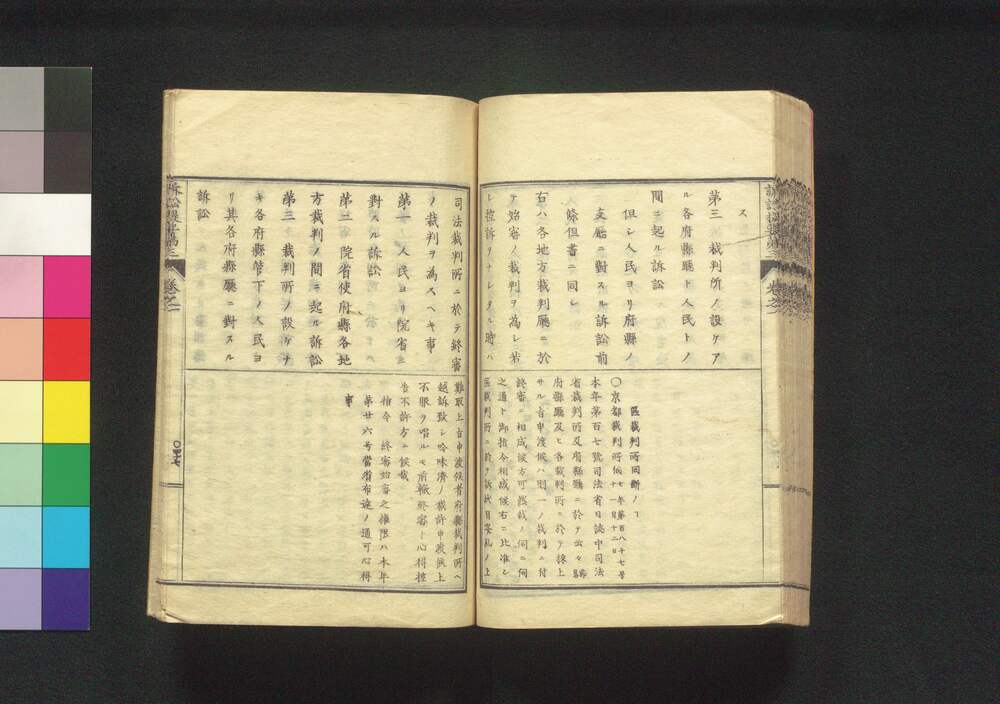 ス
第三 裁判所ノ設ケア
ル各府縣廳ト人民トノ
間ニ起ル訴訟
但シ人民ヨリ府縣ノ
支廳ニ對スル訴訟前
條但書ニ同シ
右ハ各地方裁判廳ニ於
テ始審ノ裁判ヲ為シ若
シ控訴リナレタル時ハ
區裁判所同断ノ
〇京都裁判所伺 七年第百八十七号 十一月十二日
本年第百七號司法省日誌中司法
省裁判所及府縣廳ニ於テ云々
府縣廳及ヒ各裁判所ニ於テ採上
サル旨申渡候ハ則一ノ裁判ニ付
終審ニ相成候方可然哉ノ伺ニ伺
之通ト御指令相成候右ニ比准シ
區裁判所ニ於テ訴状目安糺ノ上
司法裁判所ニ於テ終審
ノ裁判ヲ為スヘキ事
第一 人民ヨリ院省
對スル訴訟
第二 院省使府縣各地
方裁判ノ間ニ起ル訴訟
第三 裁判所ノ設ケナ
キ各府縣管下ノ人民ヨ
リ其各府縣廳ニ對スル
訴訟
難取上旨申渡候者府縣裁判所ヘ
越訴致シ吟味濟ノ裁許申渡候上
不服ヲ唱ルモ前轍終審ト心得控
告不許方ニ候哉
指令 終審始審之権限ハ本年
第廿六号當省布達ノ通可心得
事
卷之一